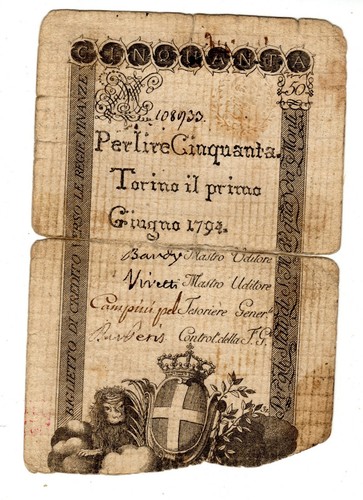 CINQUANTA
50
108933.
Per lire Cinquanta.
Torino il primo
Giugno 1794.
Mastro Uditore
Vivetti Mastro Uditore
Tesoriere Gener.
Control. della T. G.
BIGLIETTO DI CREDITO VERSO LE REGIE FINANZE